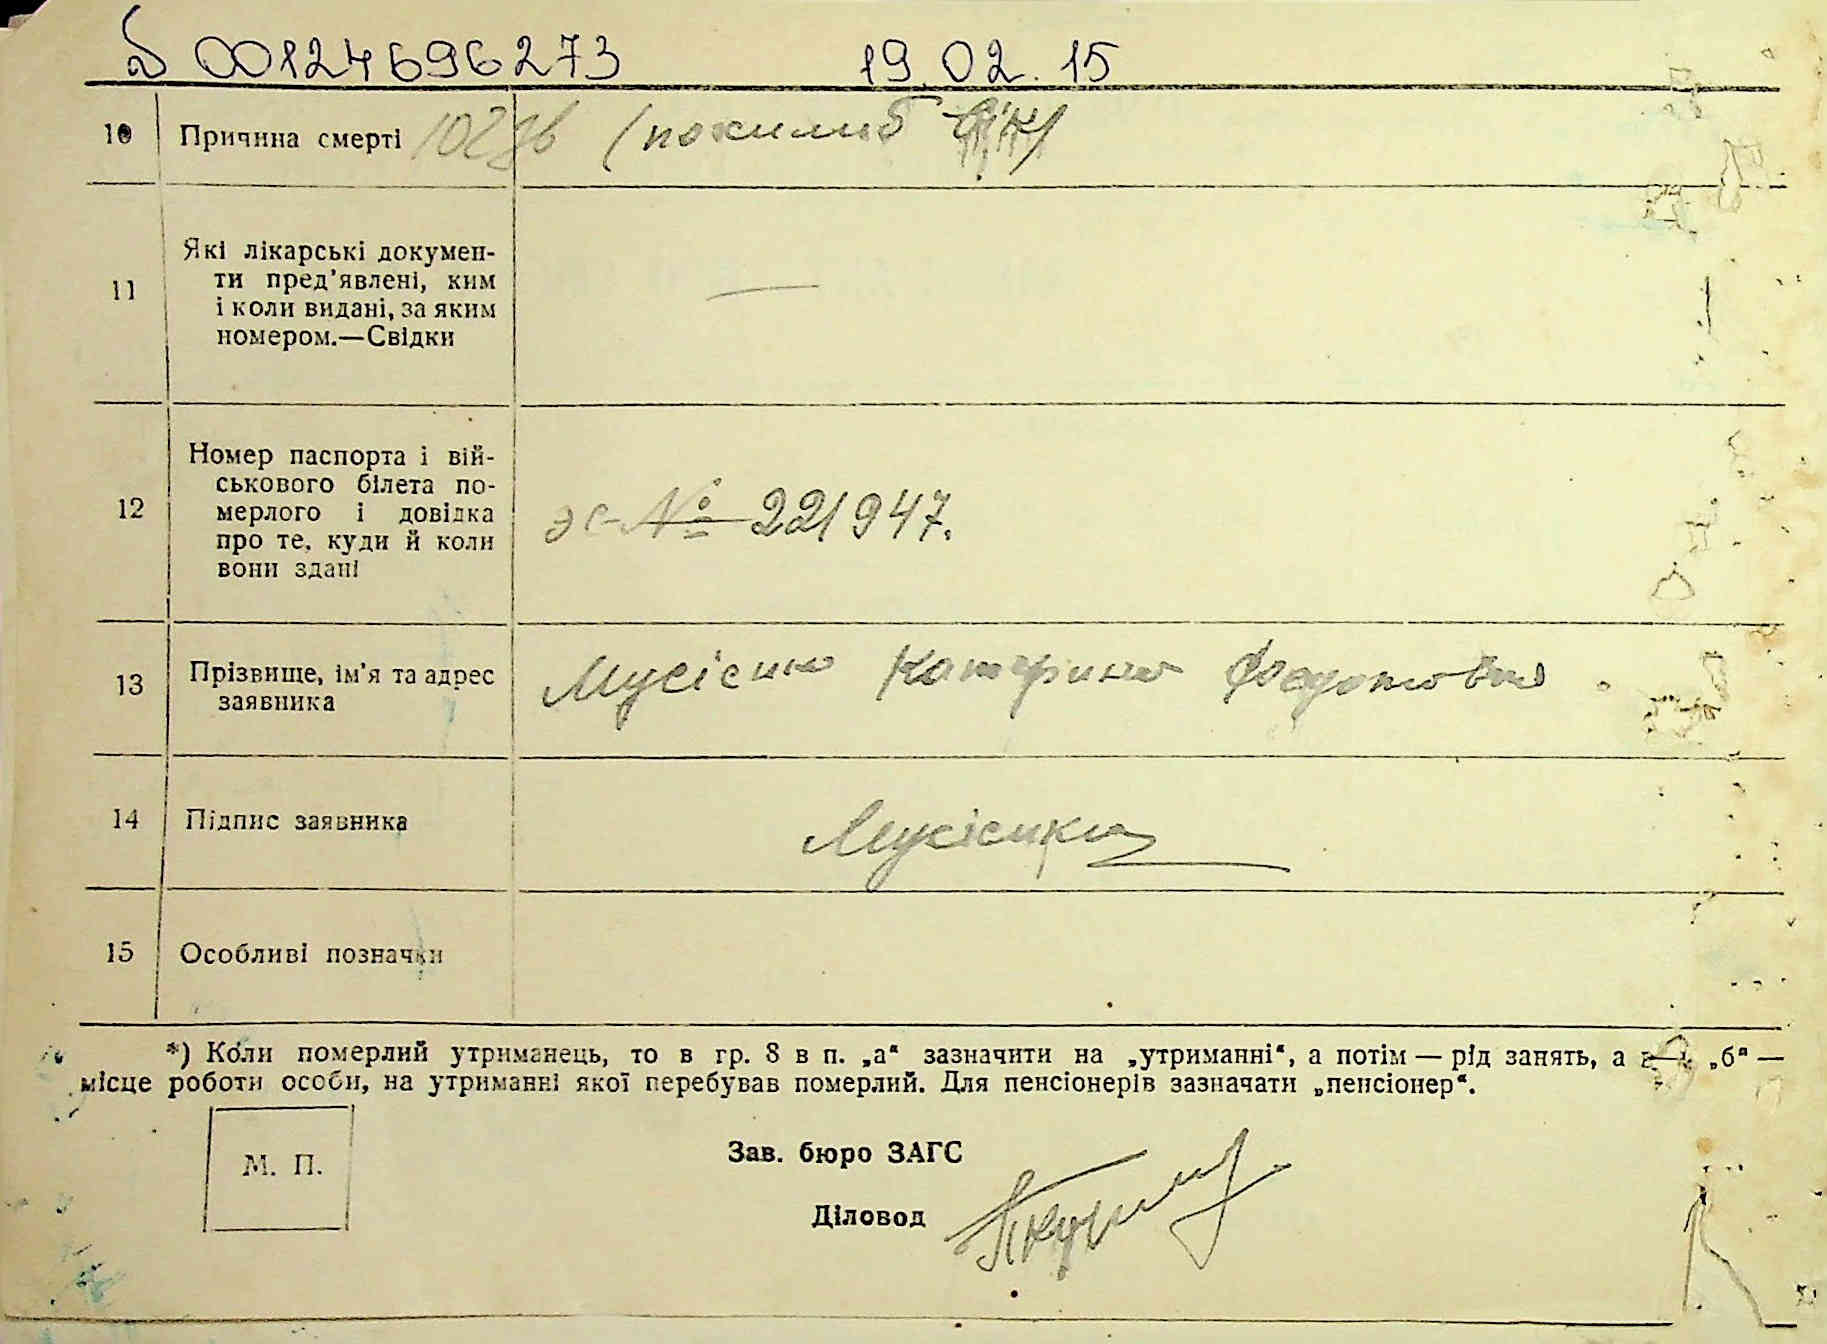 00124696273 19.02.15
10 Причина смерті (похилиб вік)
11 Які лікарські докумен-
ти пред'явлені, ким
і коли видані, за яким
номером.—Свідки —
12 Номер паспорта і вій-
ськового білета по-
мерлого і довідка
про те, куди й коли
вони здані
эс-№ 221947.
13 Прізвище, ім'я та адрес
заявника
Мусієнко Катерина Федотовна
14 Підпис заявника Мусієнко
15 Особливі позначки
*) Коли померлий утриманець, то в гр. 8 в п. „а“ зазначити на „утриманні“, а потім — рід занять, а в п. „б“ —
місце роботи особи, на утриманні якої перебував померлий. Для пенсіонерів зазначати „пенсіонер“.
М. П.
Зав. бюро ЗАГС
Діловод